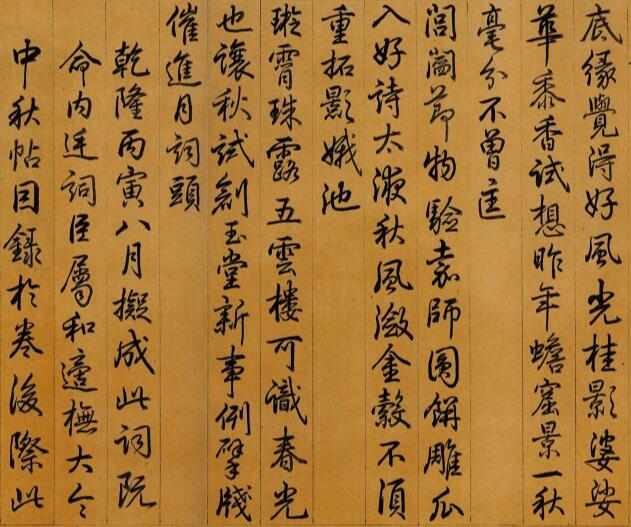 底緣覺得好風光桂影婆娑
華黍香試想昨年蟾窟景一秋
毫分不曾𨓏
閶闔節物驗嘉師圓餅雕瓜
入好詩太液秋風瀲金縠不須
重拓影娥池
璇霄珠露五雲樓可識春光
也讓秋試創玉堂新事例擘牋
催進月詞頭
乾隆丙寅八月擬成此詞既
命內廷詞臣屬和適橅大令
中秋帖因錄於卷後際此